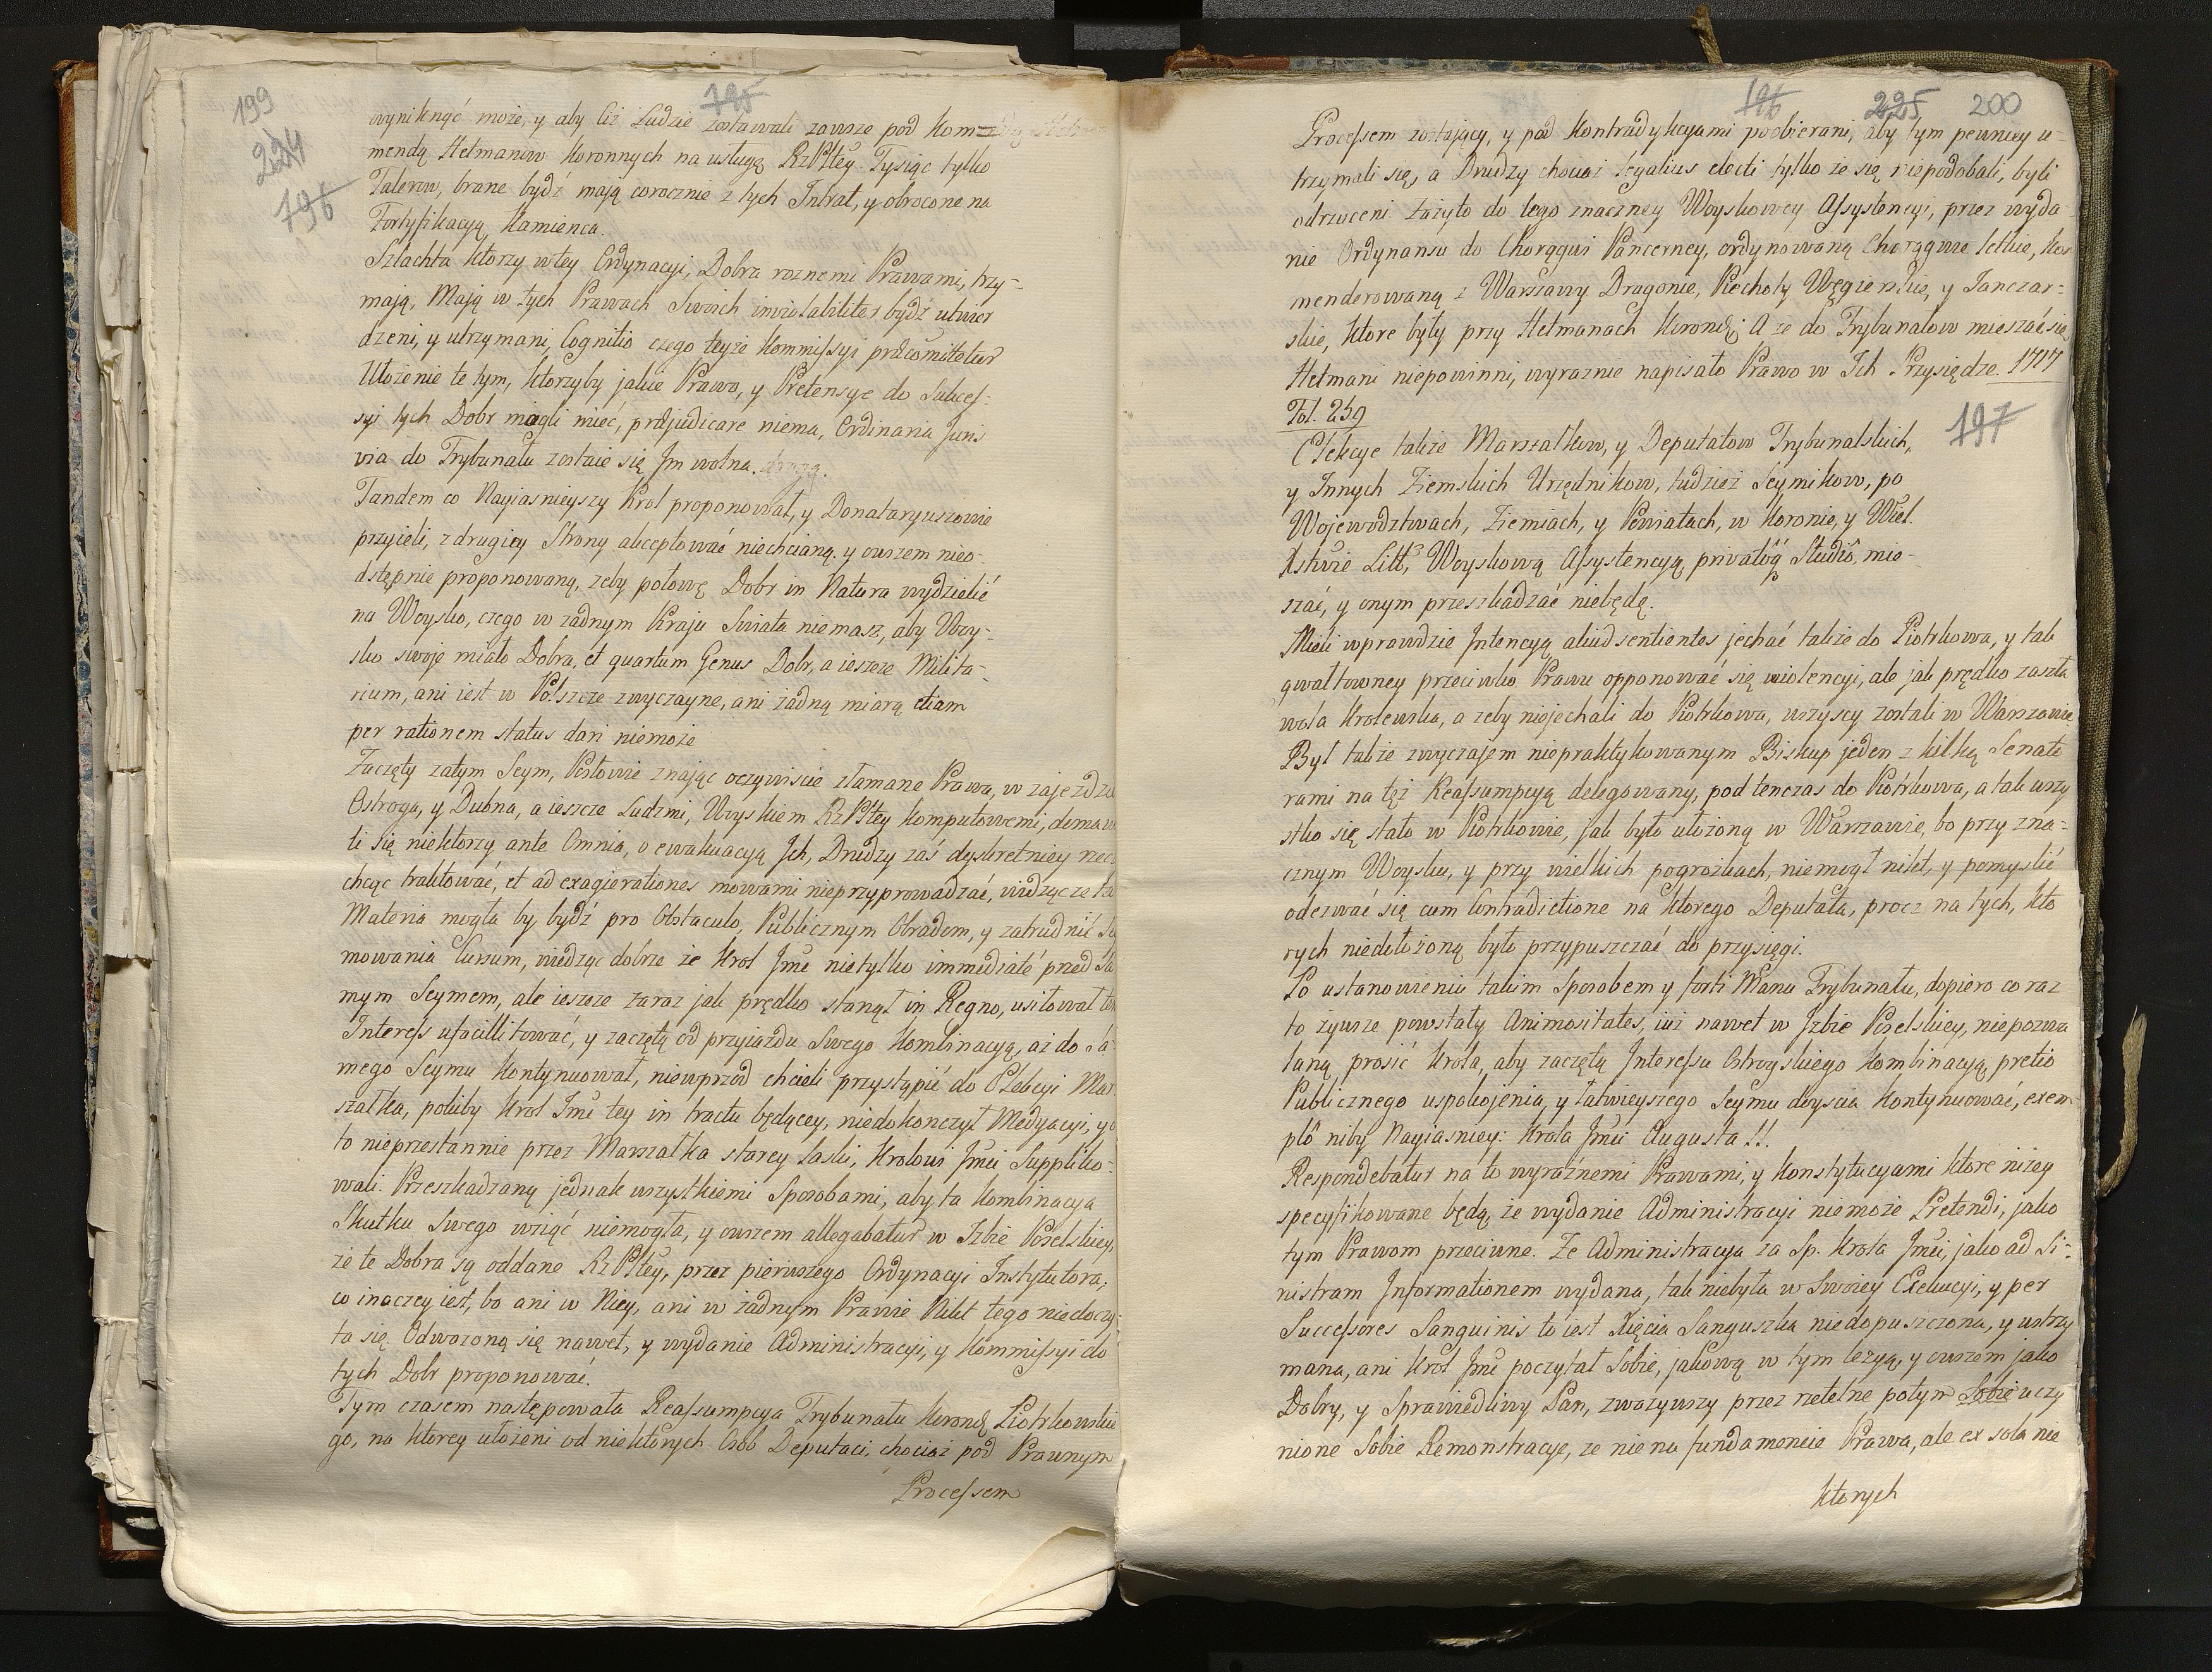 199
224
796
795
wyniknąć może, y aby ciż Ludzie zostawali zawsze pod Kom-
mendą Hetmanow Koronnych na usługę RzPltey. Tysiąc tylko
Talerow, brane bydź mają corocznie z tych Intrat, y obrocone na
Fortyfikacyą Kamienca.
Szlachta ktorzy w tey Ordynacyi, Dobra roznemi Prawami, trzy-
mają, Mają w tych Prawach Swoich inviolabiliter bydź utwier
dzeni, y utrzymani, Cognitio czego teyże Kommissyi præcomittetur
Ułożenie te tym, ktorzyby jakie Prawa, y Pretensye do Sukces-
syi tych Dobr mogli mieć, præjudicare niema, Ordinaria Juris
via do Trybunału zostaie się Jm wolna.
Tandem co Nayiasnieyszy Krol proponował, y Donataryuszowie
przyieli, z drugiey Strony akceptować niechcianą. y owszem nieo-
dstępnie proponowaną, zeby połowę Dobr in Natura wydzielić
na Woysko, czego w zadnym Kraju Swiata niemasz, aby Woy-
sko swoje miało Dobra, et quartum Genus Dobr, a ieszcze Milita-
rium, ani iest w Polszcze zwyczayne, ani żadną miarą etiam
per rationem status dari niemoże
Zaczęty zatym Seym, Posłowie znając oczywiscie złamane Prawa, w zajezdza
Ostroga, y Dubna, a ieszcze Ludzmi, Woyskiem RzPltey Komputowemi, domaw
li się niektorzy ante Omnia, o ewakuacyą Jch, Drudzy zaś dyskretniey rzec
chcąc traktować, et ad exagierationes mowami nieprzyprowadzać, widząc ze ta
Materia mogła by bydź pro Obstaculo, Publicznym Obradom, y zatrudnić Sey
mowania Cursum, wiedząc dobrze że Krol Jmć nietylko immediatè przed Sa
mym Seymem, ale ieszcze zaraz jak prędko stanął in Regno, usiłował ten
Interess ufacillitować, y zaczętą od przyiazdu Swego Kombinacyą, aż do Sa
mego Seymu Kontynuował, niewprzod chcieli przystąpić do Elekcyi Mar
szałka, pokiby Krol Jmć tey in tractu będącey, niedokonczył Medyacyi, y o
to nieprzestannie przez Marszałka starey Laski, Krolowi Jmci Suppliko-
wali. Przeszkadzaną jednak wszystkiemi Sposobami, aby ta Kombinacya
Skutku Swego wziąć niemogła, y owszem allegabatur w Izbie Poselskiey,
że te Dobra są oddane RzPltey, przez pierwszego Ordynacyi Instytutora,
co inaczey iest, bo ani w Niey, ani w żadnym Prawie Nikt tego niedoczy-
ta się. Odwazoną się nawet, y wydanie Administracyi, y Kommissyi do
tych Dobr proponować.
Tym czasem następowała Reassumpcya Trybunału Koronn Piotrkowskie
go, na ktorey ułożeni od niektorych Osob Deputaci, chociaż pod Prawnym
Processem
196
225
200
Processem zostający, y pod Kontradykcyami poobierani, aby tym pewniey u-
trzymali się, a Drudzy chociaż legalius electi tylko że się niepodobali, byli
odrzuceni zażyto do tego znaczney Woyskowey Assystencyi, przez wyda
nie Ordynansu do Chorągwi Pancerney, ordynowaną Chorągwie letkie, kom
menderowaną z Warszawy Dragonie, Piechoty Węgierskie, y Janczar-
skie, ktore były przy Hetmanach Koronn. A że do Trybunałow mieszać się
Hetmani niepowinni, wyraznie napisało Prawo w Ich Przysiędze. 1717
Fol. 259
197
Elekcye także Marszałkow, y Deputatow Trybunalskich,
y Innych Ziemskich Urzędnikow, tudzież Seymikow, po
Wojewodztwach, Ziemiach, y Powiatach, w Koronie, y Wiel.
Xstwie Litt, Woyskową Assystencyą privatoq Studio, mie-
szać, y onym przeszkadzać niebędę.
Mieli wprawdzie Intencyą aliud sentientes jechać także do Piotrkowa, y tak
gwałtowney przeciwko Prawu opponować się wiolencyi, ale jak prędko zaszła
wola Krolewska, a zeby niejechali do Piotrkowa, wszyscy zostali w Warszawie.
Był także zwyczajem niepraktykowanym Biskup jeden z kilką Senato
rami na tęż Reassumpcyą delegowany, pod tenczas do Piotrkowa, a tak wszy
stko się stało w Piotrkowie, jak było ułożoną w Warszawie, bo przy zna-
cznym Woysku, y przy wielkich pogrozkach, niemogł nikt, y pomyslić
odezwać się cum Contradictione na ktorego Deputata, procz na tych, kto
rych niedołożoną było przypuszczać do przysięgi.
Po ustanowieniu takim Sposobem y forti Manu Trybunału, dopiero co raz
to żywsze powstały Animositates, iuż nawet w Jzbie Poselskiey, niepozwa
laną prosić Krola, aby zaczętą Interessu Ostrogskiego Kombinacyą, pretio
Publicznego uspokojenia, y łatwieyszego Seymu doyscia Kontynuować, exem
plo niby Nayiasniey: Krola Jmci Augusta II.
Respondebatur na to wyraźnemi Prawami, y Konstytucyami ktore niżey
specyfikowane będą, że wydanie Administracyi niemoże Pretendi, jako
tym Prawom przeciwne. Ze Administracya za Sp. Krola Jmci, jako ad Si-
nistram Informationem wydana, tak niebyła w Swoiey Exekucyi, y per
Successores Sanguinis to iest Xięcia Sanguszka niedopuszczona, y wstrzy
mana, ani Krol Jmć poczytał Sobie, jakową w tym lezyą, y owszem jako
Dobry, y Sprawiedliwy Pan, zwazywszy przez rzetelne potym Sobie uczy
nione Sobie Remonstracye, ze nie na fundamencie Prawa, ale ex sola nie
ktorych